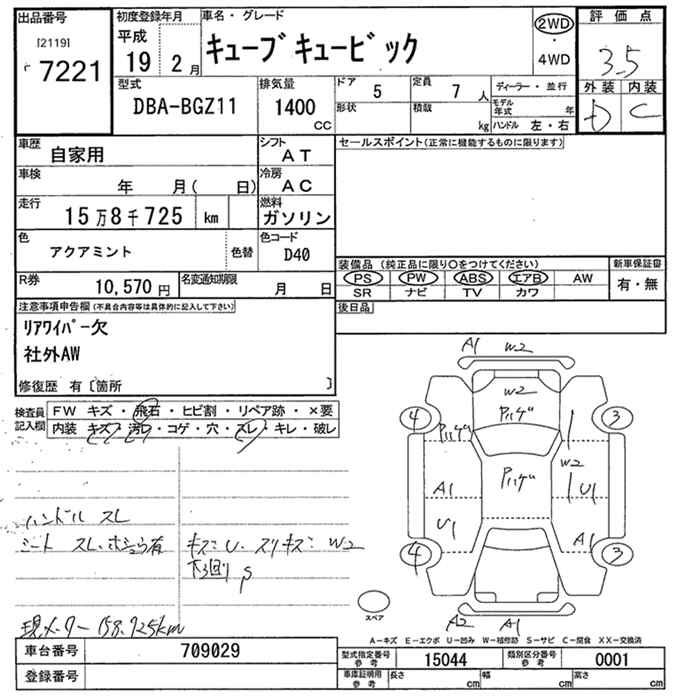 出品番号
[2119]
7221
初度登録年月
平成
19 2月
車名・グレード
キューブキュービック
2WD
・
4WD
評価点
3.5
外装 内装
D C
型式
DBA-BGZ11
排気量
1400
cc
ドア 5
形状
定員 7 人
積載
kg
ディーラー・並行
モデル年式 年
ハンドル 左・右
車歴
自家用
シフト
AT
セールスポイント(正常に機能するものに限ります)
車検
年 月( 日)
冷房
AC
走行
15万8千725 km
燃料
ガソリン
色
アクアミント
色替
色コード
D40
装備品 (純正品に限り〇をつけてください)
新車保証書
PS PW ABS エアB AW
有・無
SR ナビ TV カワ
R券
10,570円
名変通知期限
月 日
注意事項申告欄(不具合内容等は具体的に記入して下さい)
後日品
リアワイパー欠
社外AW
修復歴 有〔箇所 〕
検査員
記入欄
FW キズ・飛石・ヒビ割・リペア跡・×要
内装 キズ・汚レ・コゲ・穴・スレ・キレ・破レ
A1 W2
W2
4
3
A1
W2
U1
U1
A1
4
3
スペア
A2 A1
ハンドル スレ
シート スレ
キズ: U. スリキズ: W2
下回り S
現メーター 158,725km
A-キズ E-エクボ U-凹み W-補修跡 S-サビ C-腐食 XX-交換済
車台番号
709029
型式指定番号
参考
15044
類別区分番号
参考
0001
登録番号
車庫証明用
参考
長さ cm
幅 cm
高さ cm